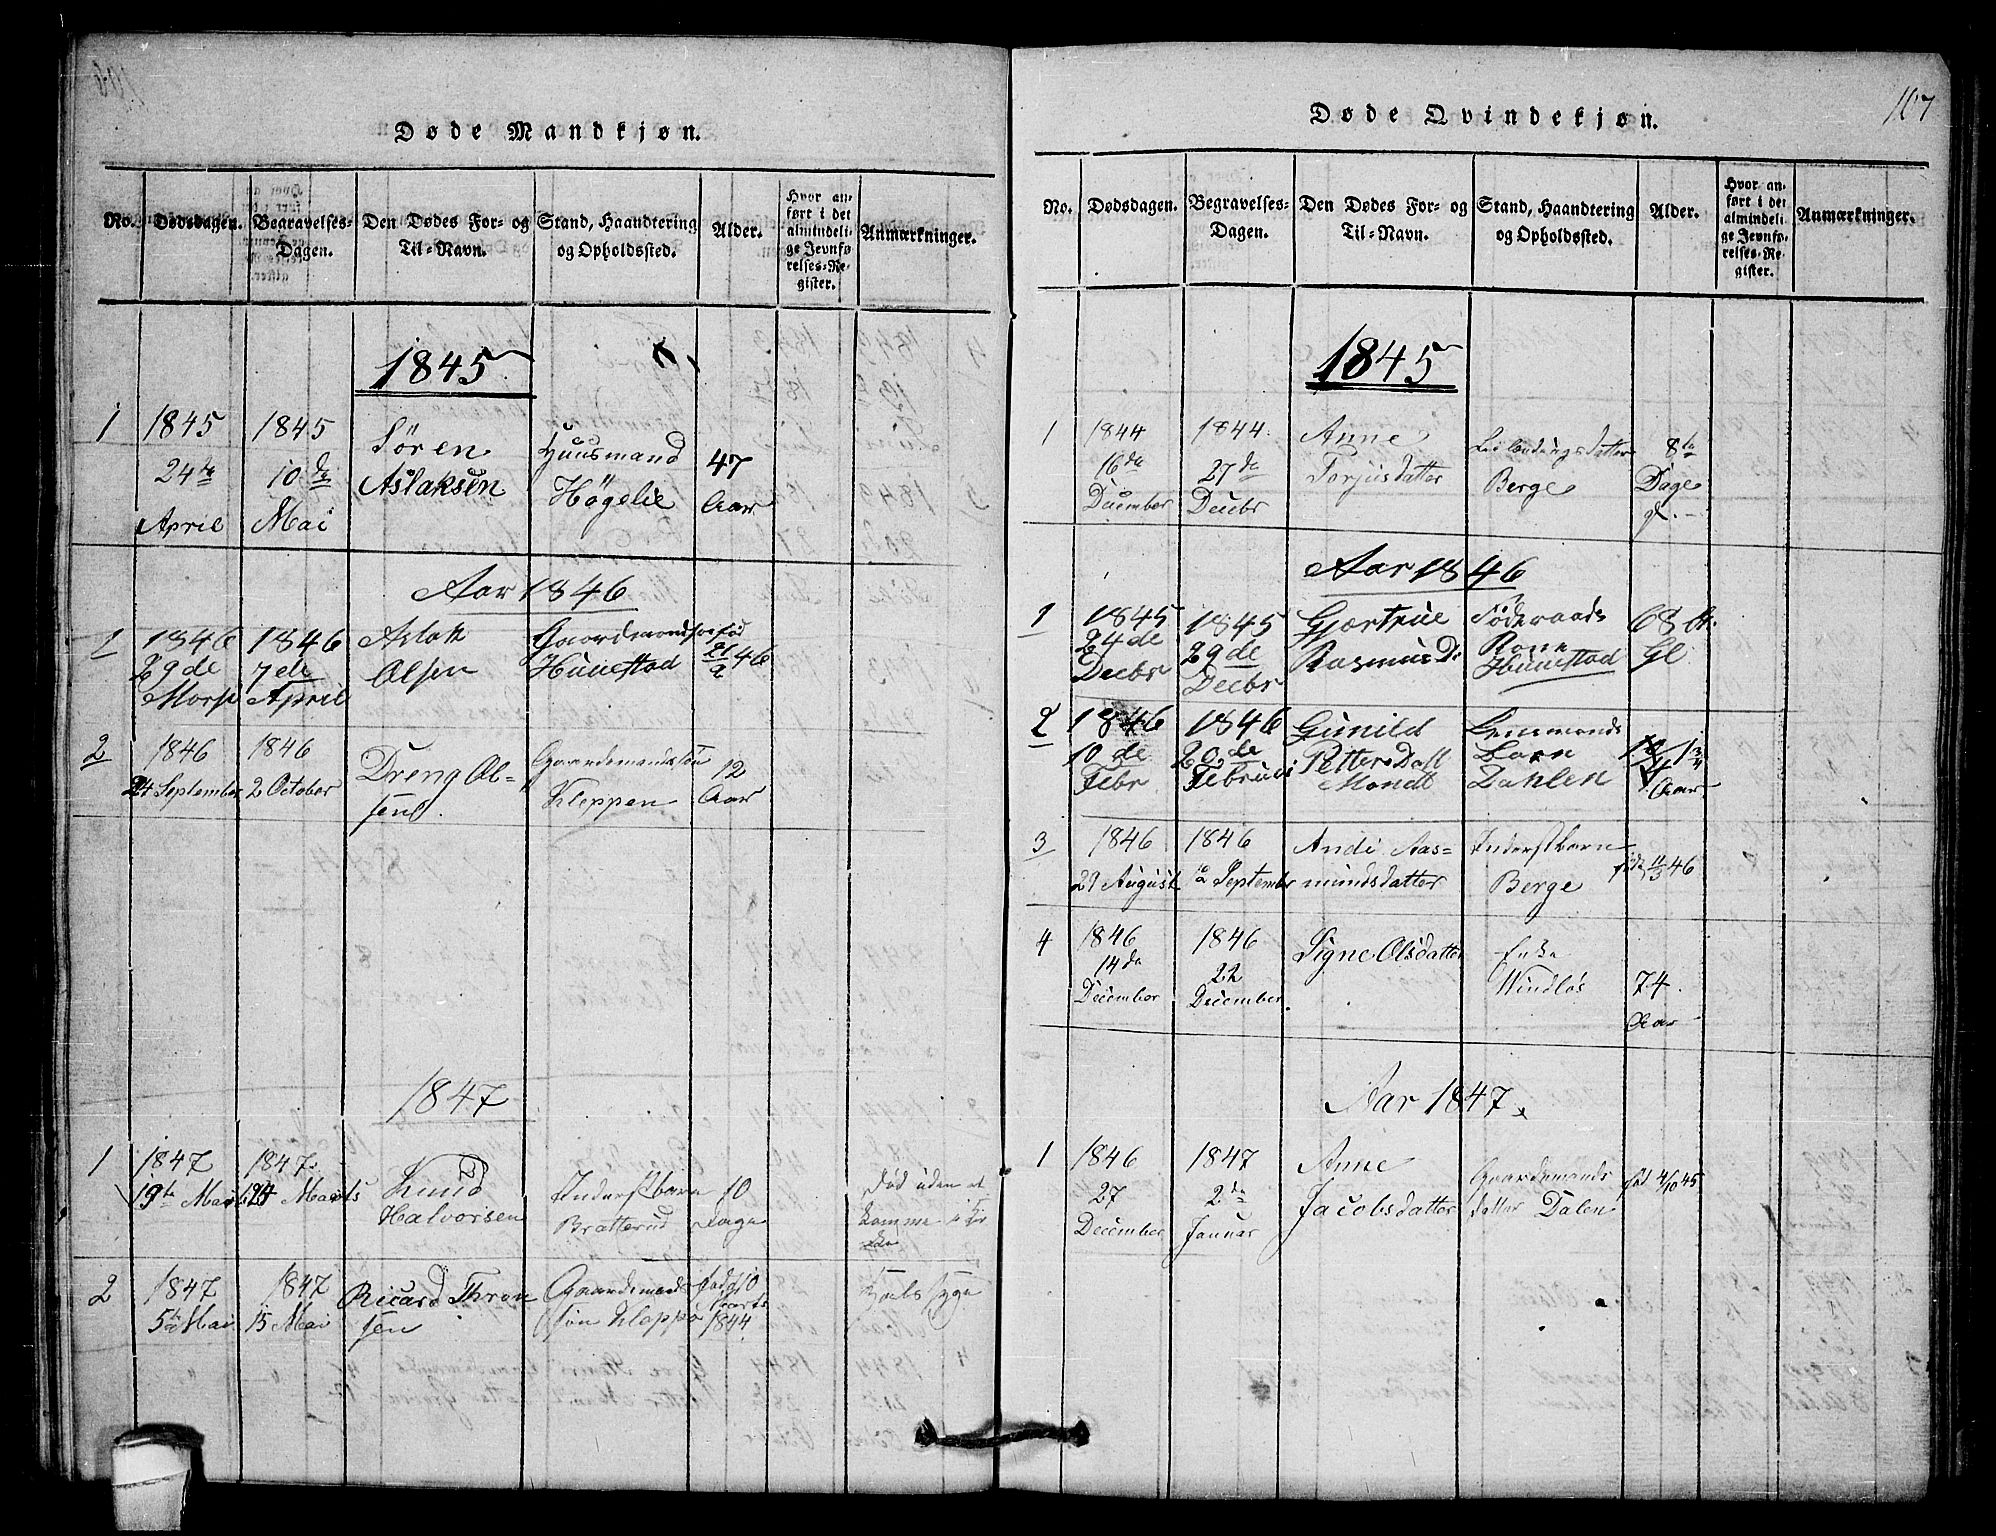 107
Døde Mandkjøn.
No.
Dødsdagen.
Begravelses-
Dagen.
Den Dødes For- og
Til-Navn.
Stand, Haandtering
og Opholdssted.
Alder.
Hvor an-
ført i det
almindeli-
ge Jevnfø-
relses-Re-
gister.
Anmærkninger.
1845
1
1845
24de
April
1845
10de
Mai
Sören
Aslaksen
Huusmand
Högelie
47
Aar
Aar 1846
1
1846
29de
1846
7de
April
Aslak
Olsen
21/2 46
2
1846
24 September
1846
2 October
Dreng Ol-
sen
Gaardemandssön
Kleppen
12
Aar
1847
1
1847
19de Marts
1847
24 Marts
Knud
Halvorsen
Inderstbarn
Bratterud
10
Dage
Död uden at
komme i Kir
2
1847
5te Mai
1847
15 Mai
Ricard Thron
sen
Gaardemands
sön Kleppe
fød 10
Marts
1844
Hals syge
Døde Qvindekjøn.
No.
Dødsdagen.
Begravelses-
Dagen.
Den Dødes For- og
Til-Navn.
Stand, Haandtering
og Opholdssted.
Alder.
Hvor an-
ført i det
almindeli-
ge Jevnfø-
relses-Re-
gister.
Anmærkninger.
1845
1
1844
16de
December
1844
27de
Decbr
Anne
Torjusdatter
Berge
8te
Dage
gl.
Aar 1846
1
1845
24de
Decbr
1845
29de
Decbr
Gjertrue
Rasmusd
Föderaads
Kone
68
Gl
2
1846
10de
Febr
1846
20de
Februari
Gunild
Petters Datt
Lensmands
Barn
Dahlen
Aar
3
1846
29 August
1846
September
Andi Aas-
mundsdatter
Inderstbarn
Berge
11/3 46
4
1846
14de
December
1846
22
December
Signe Olsdatter
Enke
Windlös
74
Aar
Aar 1847
1
1846
27
December
1847
2de
Januar
Anne
Jacobsdatter
Gaardemands
datter Dalen
fød 4/10 45